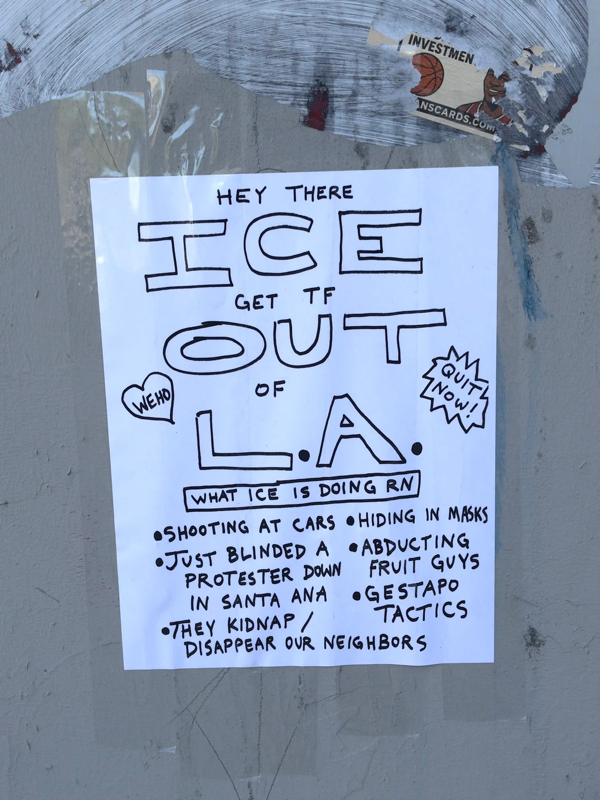 INVESTMEN
NSCARDS.COM
HEY THERE
ICE
GET TF
OUT
OF
WEHO
QUIT
NOW!
L.A.
WHAT ICE IS DOING RN
•SHOOTING AT CARS
•JUST BLINDED A
PROTESTER DOWN
IN SANTA ANA
•THEY KIDNAP/
DISAPPEAR OUR NEIGHBORS
•HIDING IN MASKS
•ABDUCTING
FRUIT GUYS
•GESTAPO
TACTICS